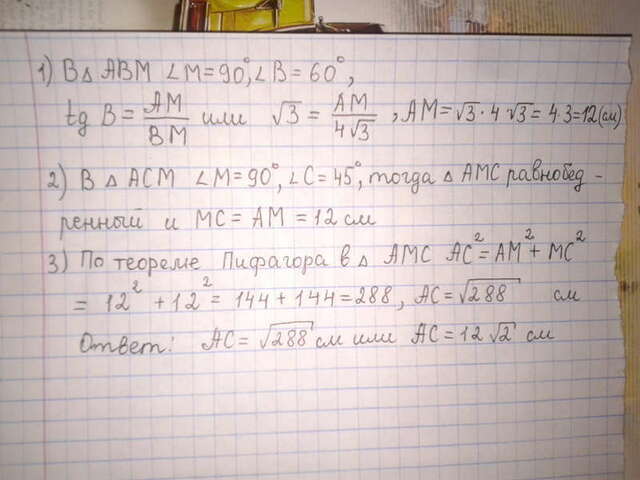 1) В ∆ ABM ∠M=90°, ∠B=60°,
tg B = AM/BM или √3 = AM/4√3, AM=√3·4√3=4·3=12(см)
2) В ∆ ACM ∠M=90°, ∠C=45°, тогда ∆ AMC равнобед-
ренный и MC=AM=12см
3) По теореме Пифагора в ∆ AMC AC²=AM²+MC²
= 12²+12²= 144+144=288, AC=√288 см
Ответ: AC=√288 см или AC=12√2 см